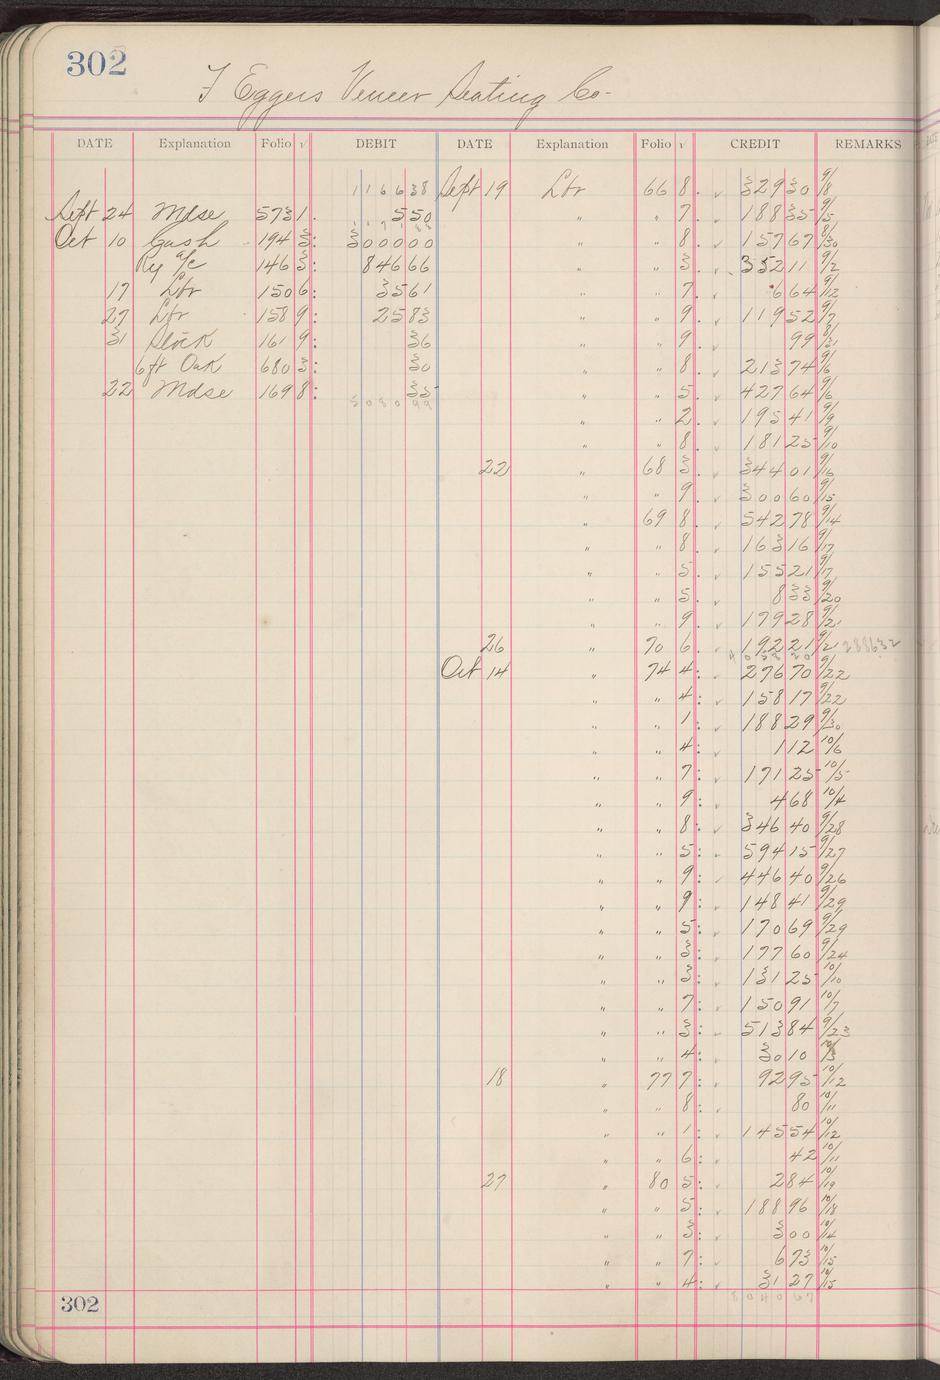 302
F Eggers Veneer Seating Co-
DATE Explanation Folio √ DEBIT DATE Explanation Folio √ CREDIT REMARKS
1 1 6 6 38 Sept 19 Lbr 66 8. √ 329 30 9/8
Sept 24 Mdse 573 1. 5 50 " " 7. √ 188 35 9/5
Oct 10 Cash 194 3: 3000 00 " " 8. √ 157 67 8/30
Ry a/c 146 3: 846 66 " " 3. √ 352 11 9/2
17 Lbr 150 6: 35 61 " " 7. √ 6 64 9/12
27 Lbr 158 9: 25 83 " " 9. √ 119 52 9/7
31 Stock 161 9: 36 " " 9. √ 99 8/31
6ft Oak 680 3: 30 " " 8. √ 213 74 9/6
22 Mdse 169 8: 35 " " 5. √ 427 64 9/6
5080 99 " " 2. √ 195 41 9/9
" " 8. √ 181 25 9/10
22 " 68 3. √ 344 01 9/16
" " 9. √ 300 60 9/15
" 69 8. √ 542 78 9/14
" " 8. √ 163 16 9/17
" " 5. √ 155 21 9/17
" " 5. √ 8 33 9/20
" " 9. √ 179 28 9/2
26 " 70 6. √ 192 21 9/2 2886 32
Oct 14 " 74 4. √ 276 70 9/22
" " 4: √ 158 17 9/22
" " 1: √ 188 29 9/30
" " 4: √ 1 12 10/6
" " 7: √ 171 25 10/5
" " 9: √ 4 68 10/4
" " 8: √ 346 40 9/28
" " 5: √ 594 15 9/27
" " 9: √ 446 40 9/26
" " 9: √ 148 41 9/29
" " 5: √ 170 69 9/29
" " 3: √ 177 60 9/24
" " 3: √ 131 25 10/10
" " 7: √ 150 91 10/7
" " 3: √ 513 84 9/23
" " 4: √ 30 10 10/3
18 " 77 7: √ 92 95 10/12
" " 8: √ 80 10/11
" " 1: √ 145 54 10/12
" " 6: √ 42 10/11
27 " 80 5: √ 2 84 10/19
" " 5: √ 188 96 10/18
" " 3: √ 3 00 10/14
" " 7: √ 6 73 10/15
" " 4: √ 31 27 10/15
8040 67
302